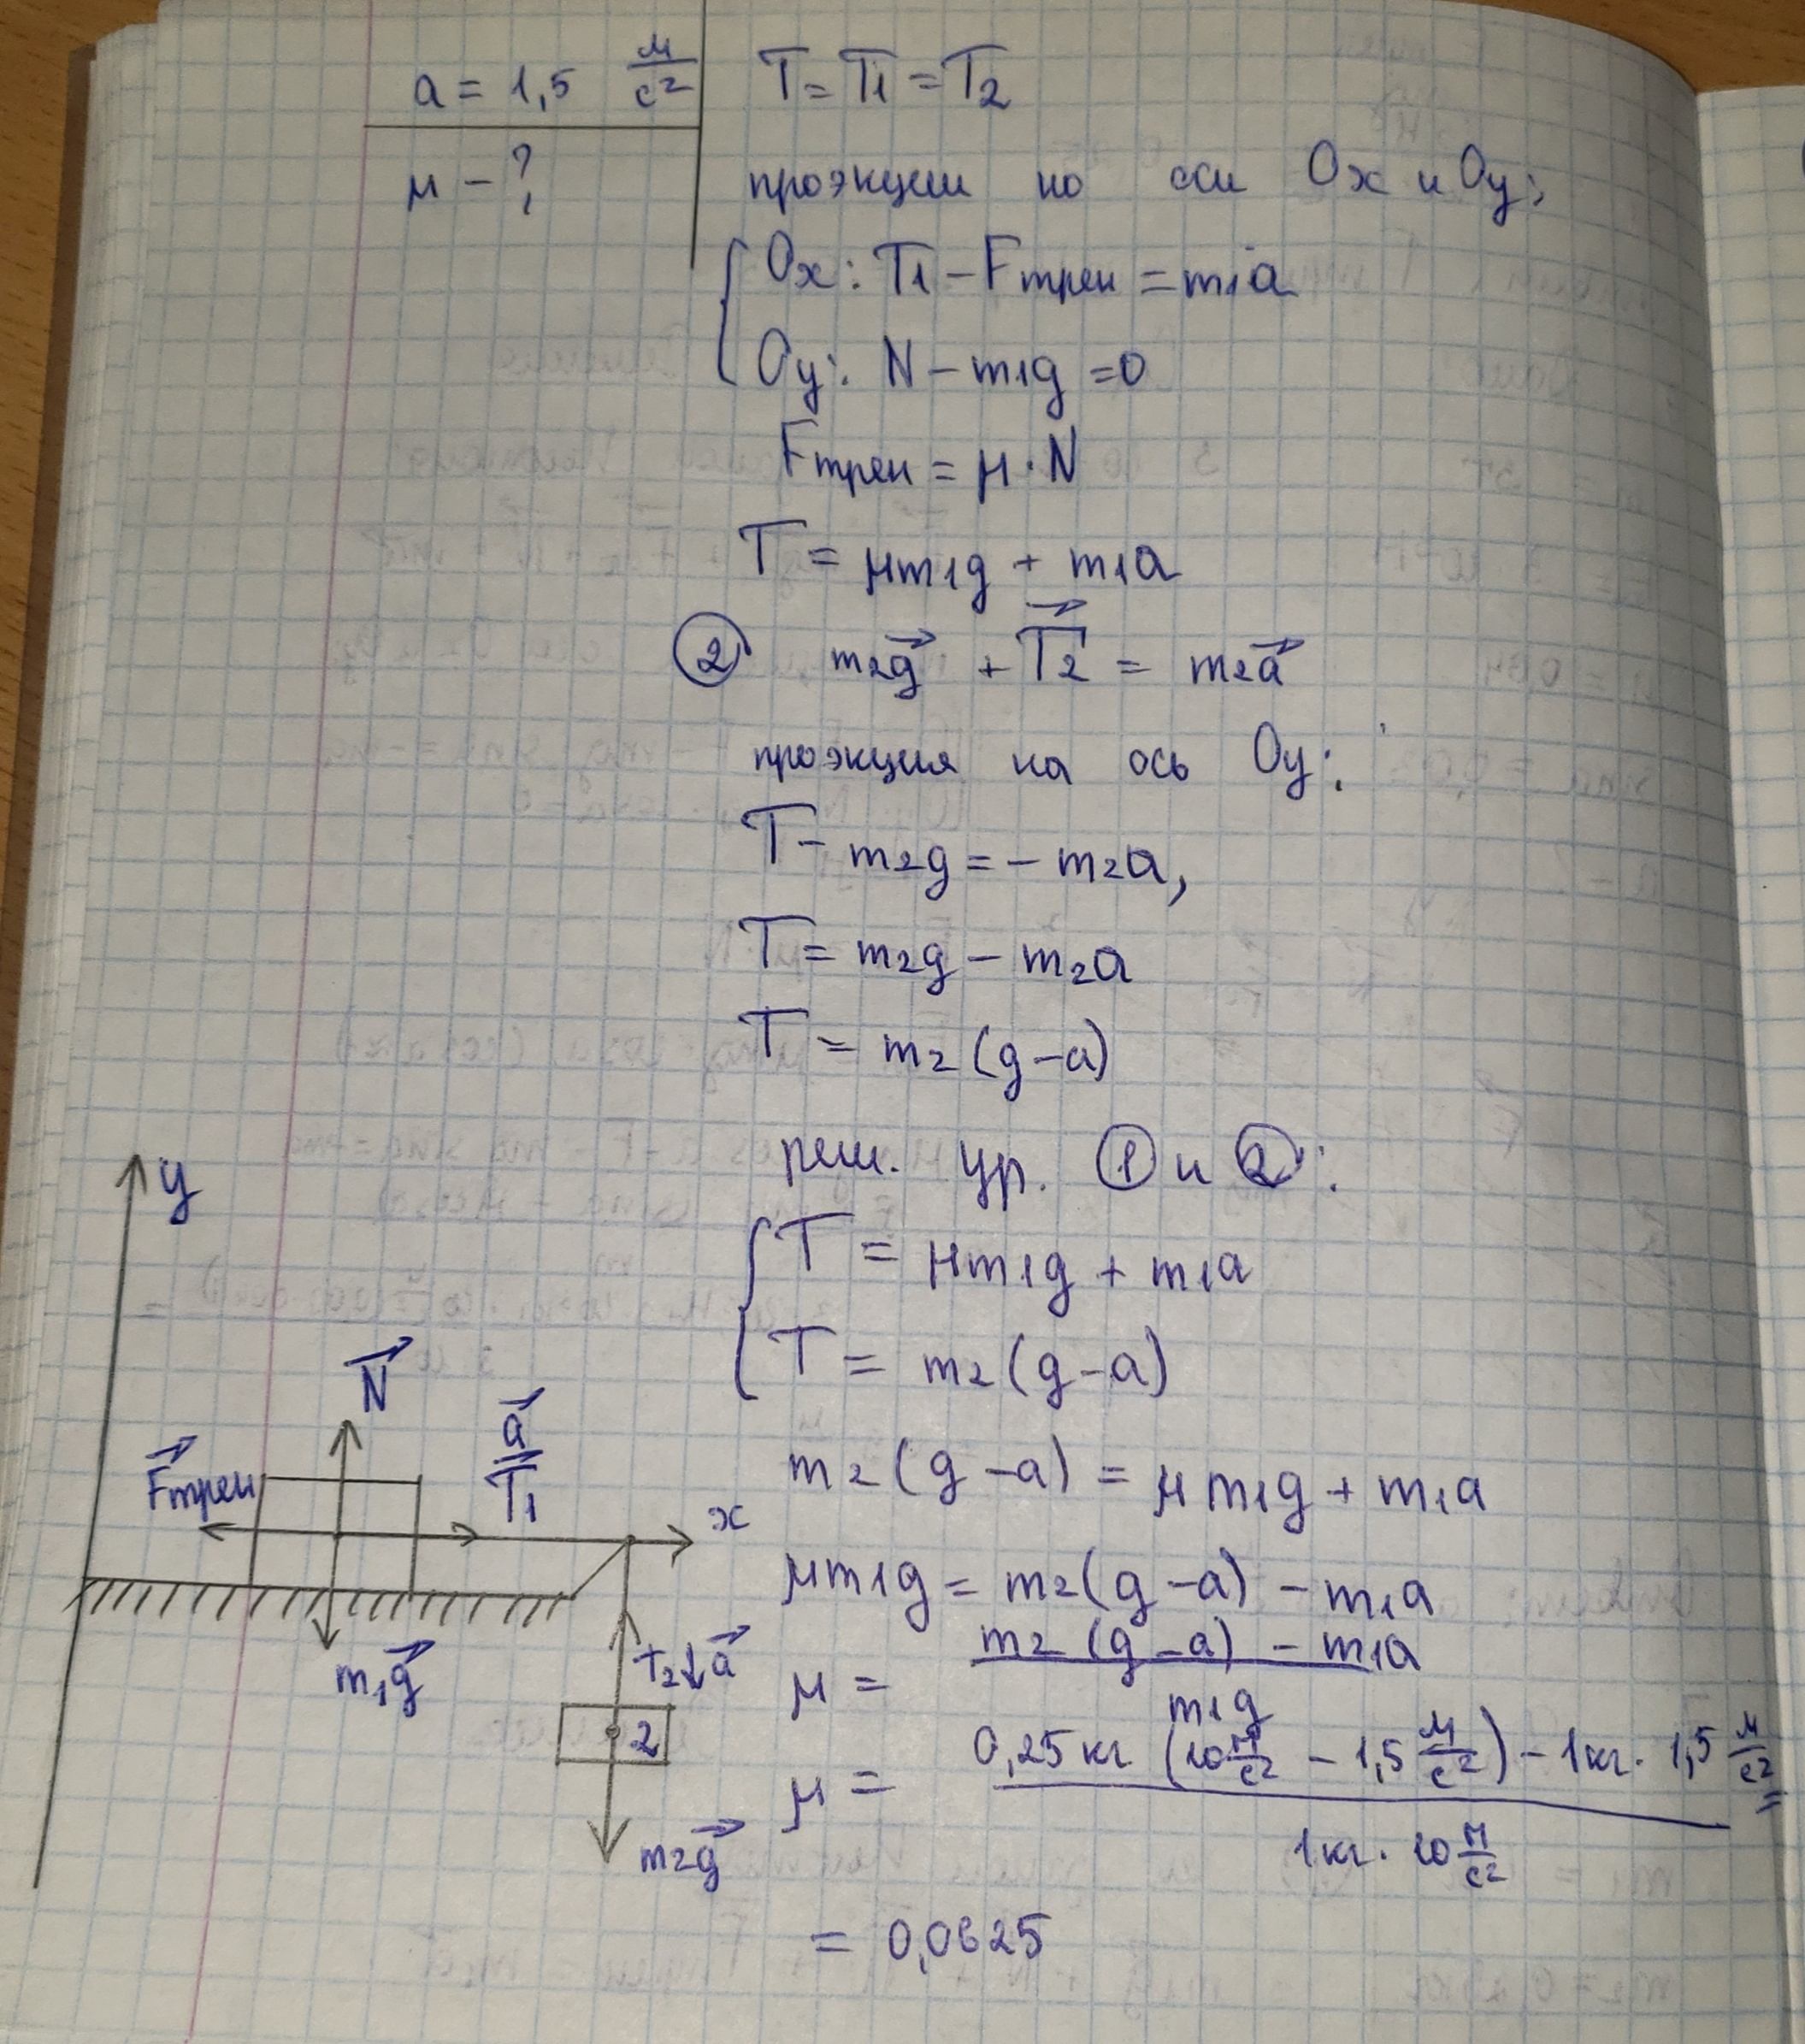 a = 1,5 м/с²
μ - ?
T = T1 = T2
проэкции но оси Ox и Oy:
Ox: T1 - Fтрен = m1a
Oy: N - m1g = 0
Fтрен = μ · N
T = μm1g + m1a
② m2g⃗ + T⃗2 = m2a⃗
проэкция на ось Oy:
T - m2g = - m2a,
T = m2g - m2a
T = m2 (g - a)
реш. ур. ① и ②:
T = μm1g + m1a
T = m2 (g - a)
m2 (g - a) = μ m1g + m1a
μm1g = m2 (g - a) - m1a
μ = (m2 (g - a) - m1a) / m1g
μ = (0,25 кг (10 м/с² - 1,5 м/с²) - 1 кг · 1,5 м/с²) / (1 кг · 10 м/с²) =
= 0,0625
y
N⃗
a⃗
F⃗трен
T⃗1
x
m1g⃗
T2 ↓a⃗
2
m2g⃗